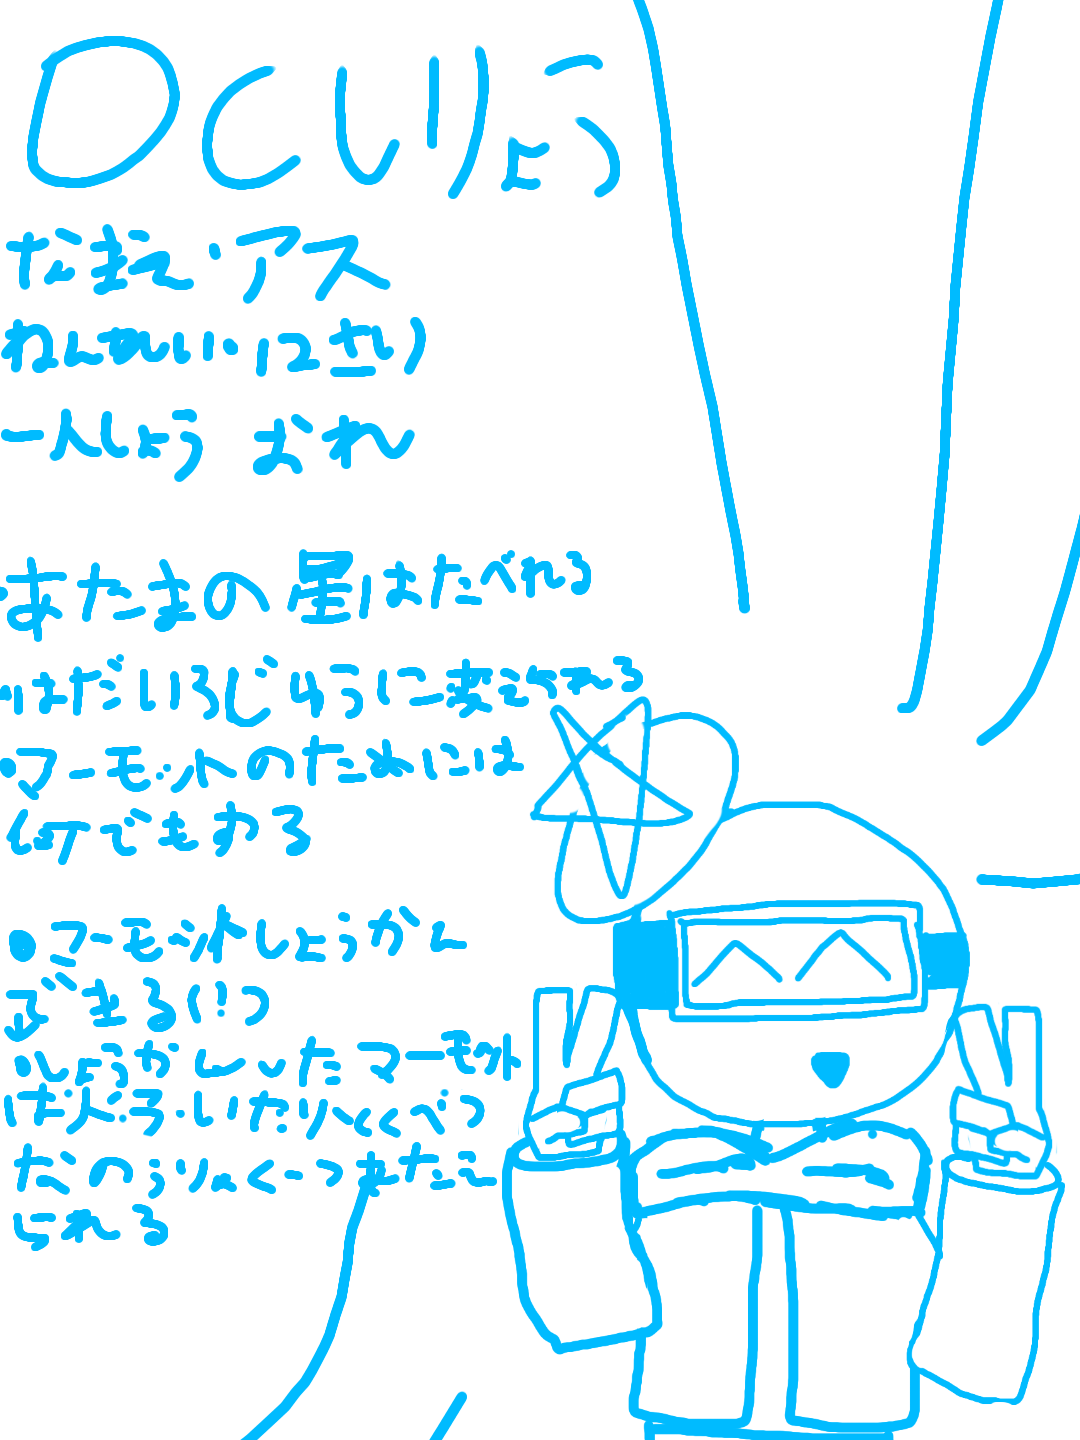 OCしりょう
なまえ・アス
ねんれい・12さい)
一人しょう おれ
・あたまの星はたべれる
・はだいろじゆうに変えられる
・マーモットのためには
何でもする
・マーモットしょうかん
できる(!?つ
・しょうかんしたマーモット
は
だのうりょく一つ
られる